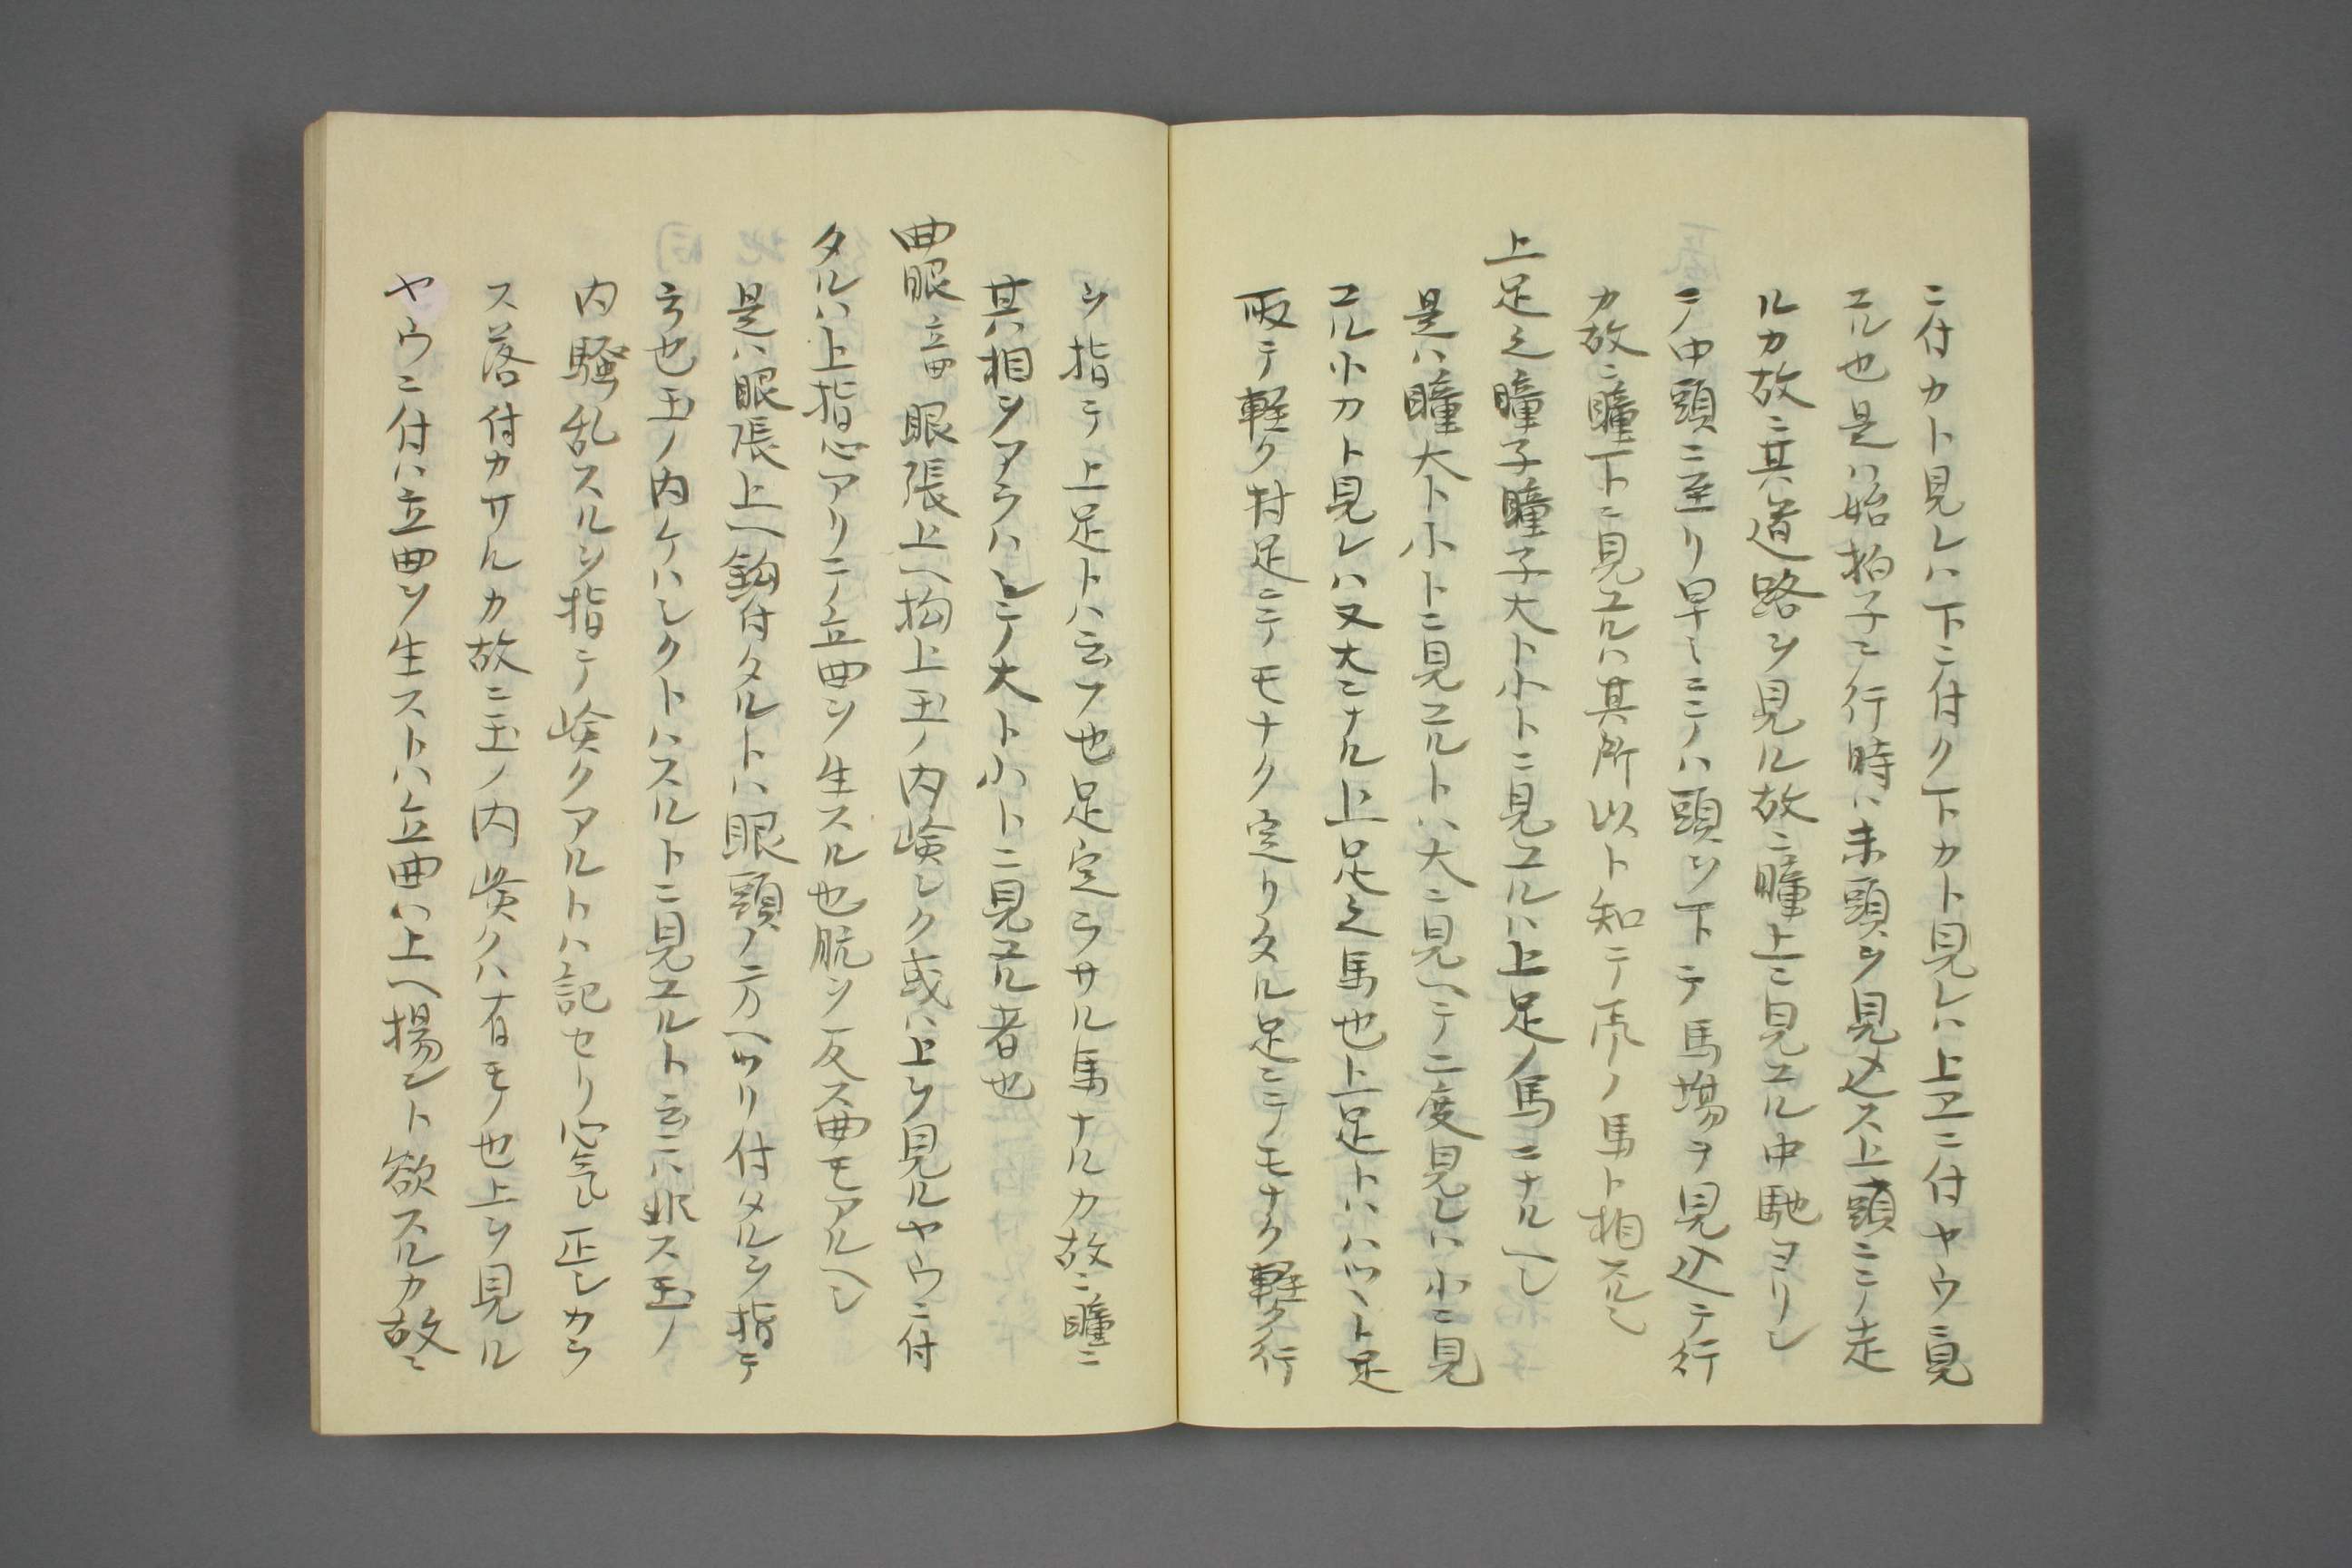 ニ付カト見レハ下ニ付ク下カト見レハ上エニ付ヤウニ見
エル也是ハ始拍子ニ行時ハ未頭ヲ見込ス上頭ニテ走
ルカ故ニ其道路ヲ見ル故ニ瞳上ニ見エル中馳ヨリシ
テ中頭ニ至リ早シニテハ頭ヲ下テ馬場ヲ見込テ行
カ故ニ瞳下ニ見エルハ其所以ト知テ ノ馬ト相スルシ
上足之瞳子瞳子大ト小トニ見エルハ上足ノ馬ニナルヘシ
是ハ瞳大ト小トニ見エルトハ大ニ見ヘテ二度見レハ小ニ見
エル小カト見レハ又大ニナル上足之馬也上足トハハツハト足
取テ軽ク村足ニテモナク定リタル足ニテモナク軽ク行
ヲ指テ上足トハ云フ也足定ラサル馬ナルカ故ニ瞳ニ
其相ヲアラハシテ大ト小トニ見エル者也
曲眼 立曲 眼張上ヘ拘上玉ノ内嶮シク或ハ上ヲ見ルヤウニ付
タルハ上指心アリテ立曲ヲ生スル也 ヲ反ス曲モアルヘシ
是ハ眼張上ヘ鈎付タルトハ眼頭ノ二方ヘツリ付タルヲ指テ
云也玉ノ内ケハシクトハスルトニ見エルト云ニハ非ス玉ノ
内騒乱スルヲ指テ嶮クアルトハ記セリ心気正シカラ
ス落付カサルカ故ニ玉ノ内嶮クハ有モノ也上ヲ見ル
ヤウニ付ハ立曲ヲ生ストハ立曲ハ上ヘ揚ント欲スルカ故ニ